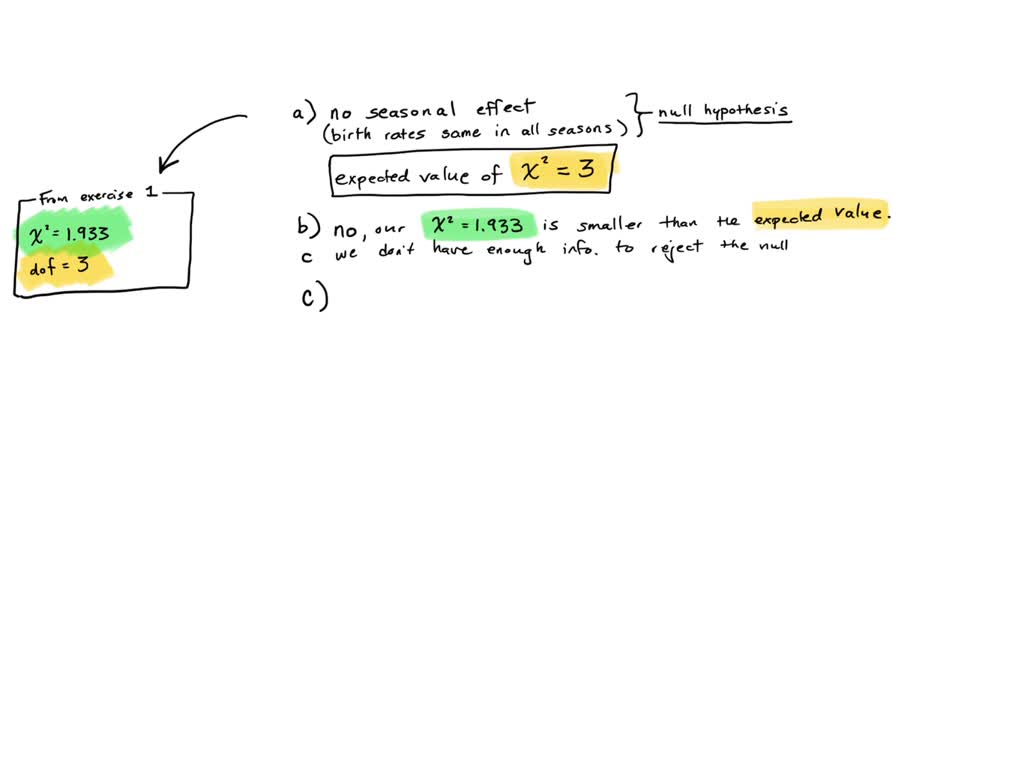 a) no seasonal effect
(birth rates same in all seasons)
null hypothesis
expected value of χ² = 3
From exercise 1
χ² = 1.933
dof = 3
b) no, our χ² = 1.933 is smaller than the expected value.
c we don't have enough info. to reject the null
c)